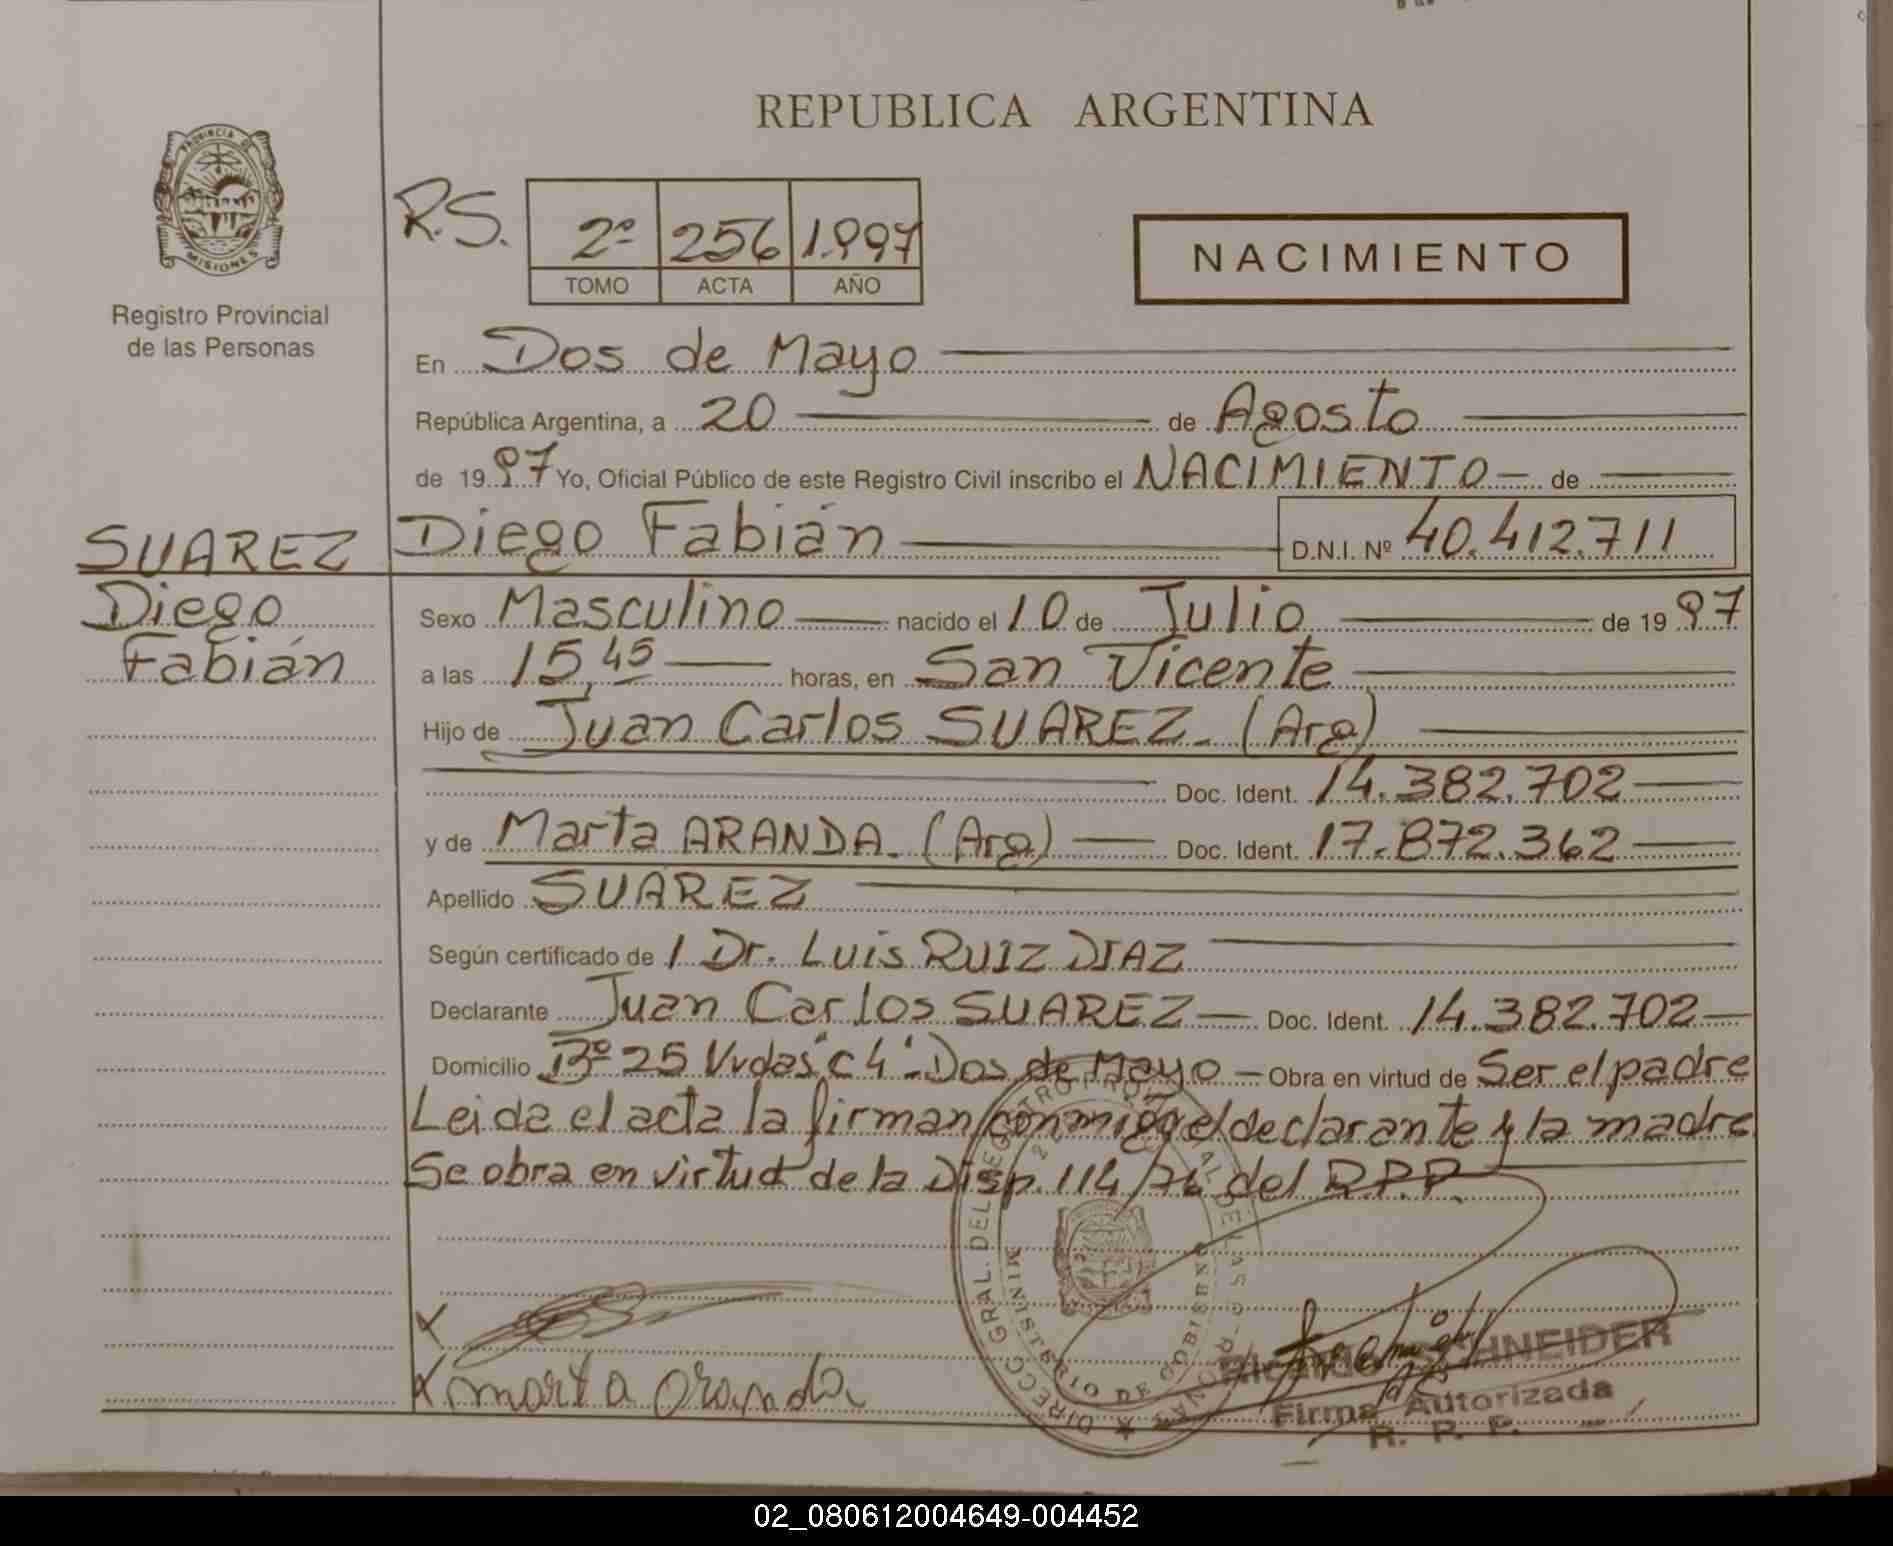 REPUBLICA ARGENTINA
PROVINCIA DE MISIONES
Registro Provincial
de las Personas
R.S. 2º 256 1.997
TOMO ACTA AÑO
NACIMIENTO
En Dos de Mayo
República Argentina, a 20 de Agosto
de 1997 Yo, Oficial Público de este Registro Civil inscribo el NACIMIENTO de
SUAREZ Diego Fabián D.N.I. Nº 40.412.711
Diego
Fabián
Sexo Masculino nacido el 10 de Julio de 1997
a las 15,45 horas, en San Vicente
Hijo de Juan Carlos SUAREZ. (Arg)
Doc. Ident. 14.382.702
y de Marta ARANDA. (Arg) Doc. Ident. 17.872.362
Apellido SUAREZ
Según certificado de / Dr. Luis RUIZ DIAZ
Declarante Juan Carlos SUAREZ Doc. Ident. 14.382.702
Domicilio Bº 25 Vvdas "C 4" Dos de Mayo Obra en virtud de Ser el padre
Leida el acta la firman conmigo el declarante y la madre
Se obra en virtud de la Disp. 114/76 del R.P.P.
DIRECC. GRAL. DEL REGISTRO PROVINCIAL DE LAS PERSONAS
MINISTERIO DE GOBIERNO
X
X marta aranda
Ricardo SCHNEIDER
Firma Autorizada
R. P. P.
02_080612004649-004452